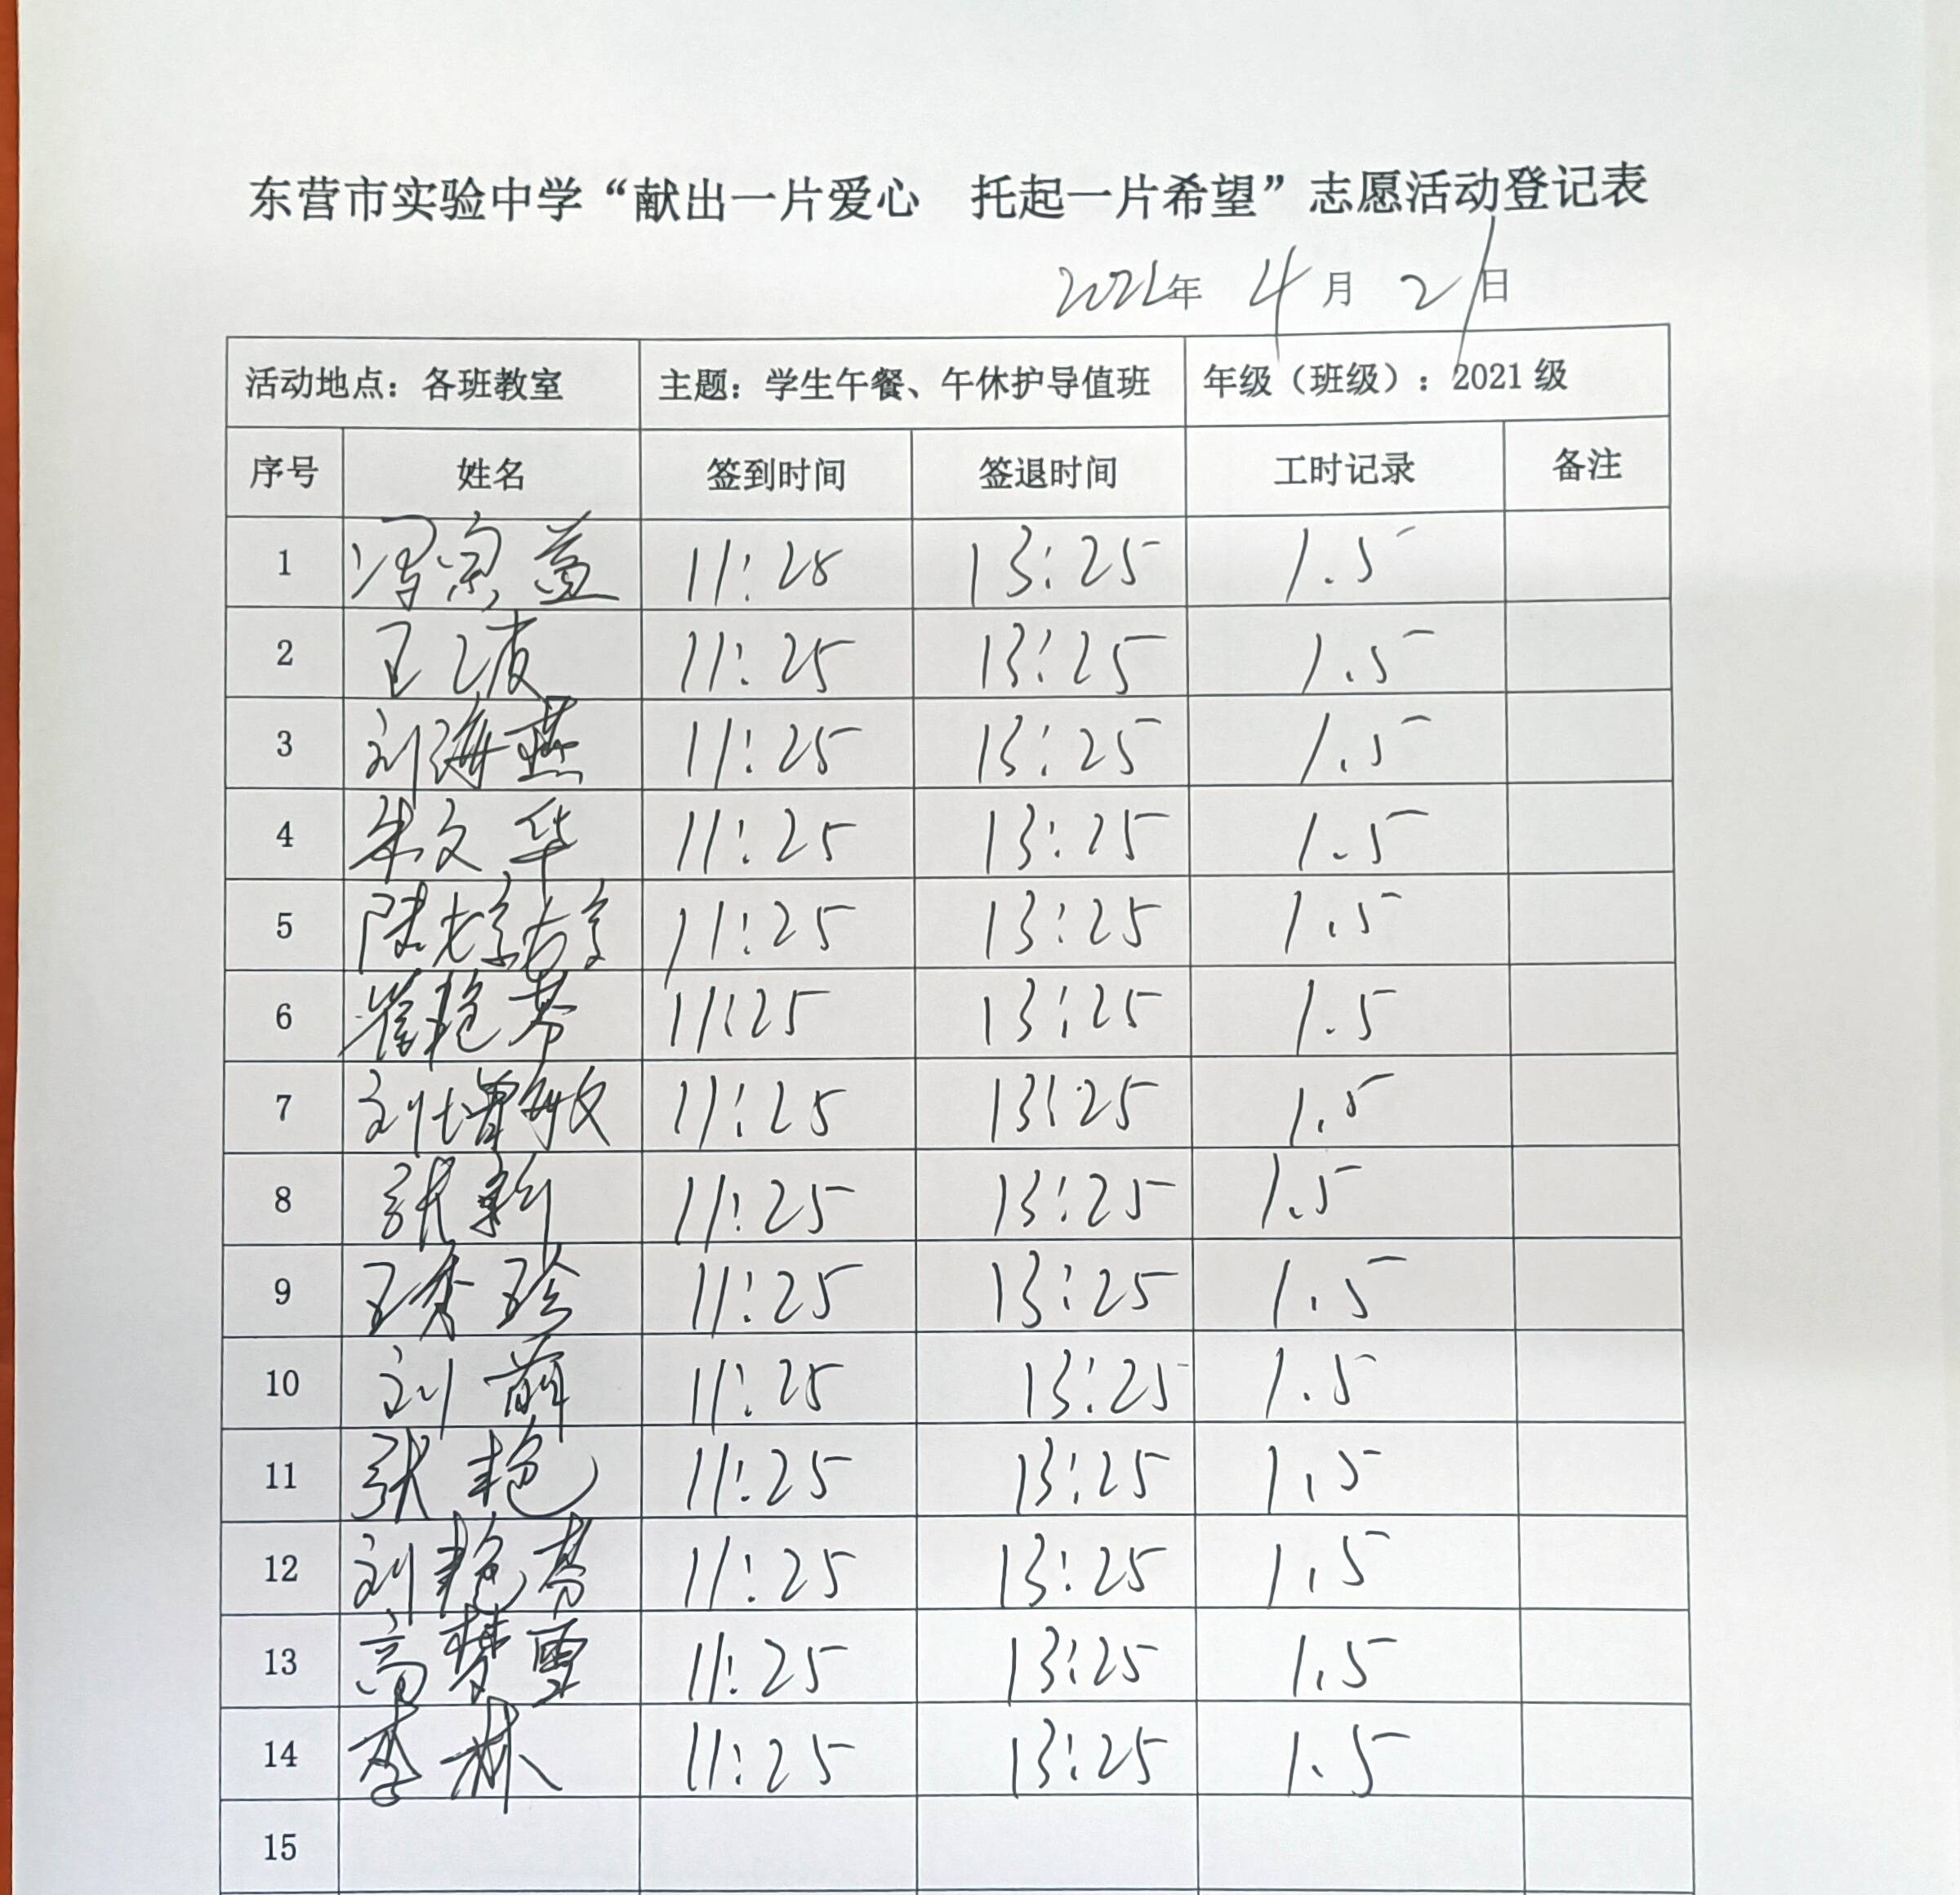 东营市实验中学“献出一片爱心 托起一片希望”志愿活动登记表
年 4 月 21 日
活动地点：各班教室 主题：学生午餐、午休护导值班 年级（班级）：2021 级
序号 姓名 签到时间 签退时间 工时记录 备注
1 冯宗益 11:25 13:25 1.5
2 王波 11:25 13:25 1.5
3 刘海燕 11:25 13:25 1.5
4 朱文华 11:25 13:25 1.5
5 11:25 13:25 1.5
6 崔艳芬 11:25 13:25 1.5
7 刘增敏 11:25 13:25 1.5
8 张新 11:25 13:25 1.5
9 王秀珍 11:25 13:25 1.5
10 刘萌 11:25 13:25 1.5
11 张艳 11:25 13:25 1.5
12 刘艳芬 11:25 13:25 1.5
13 高梦雪 11:25 13:25 1.5
14 李林 11:25 13:25 1.5
15